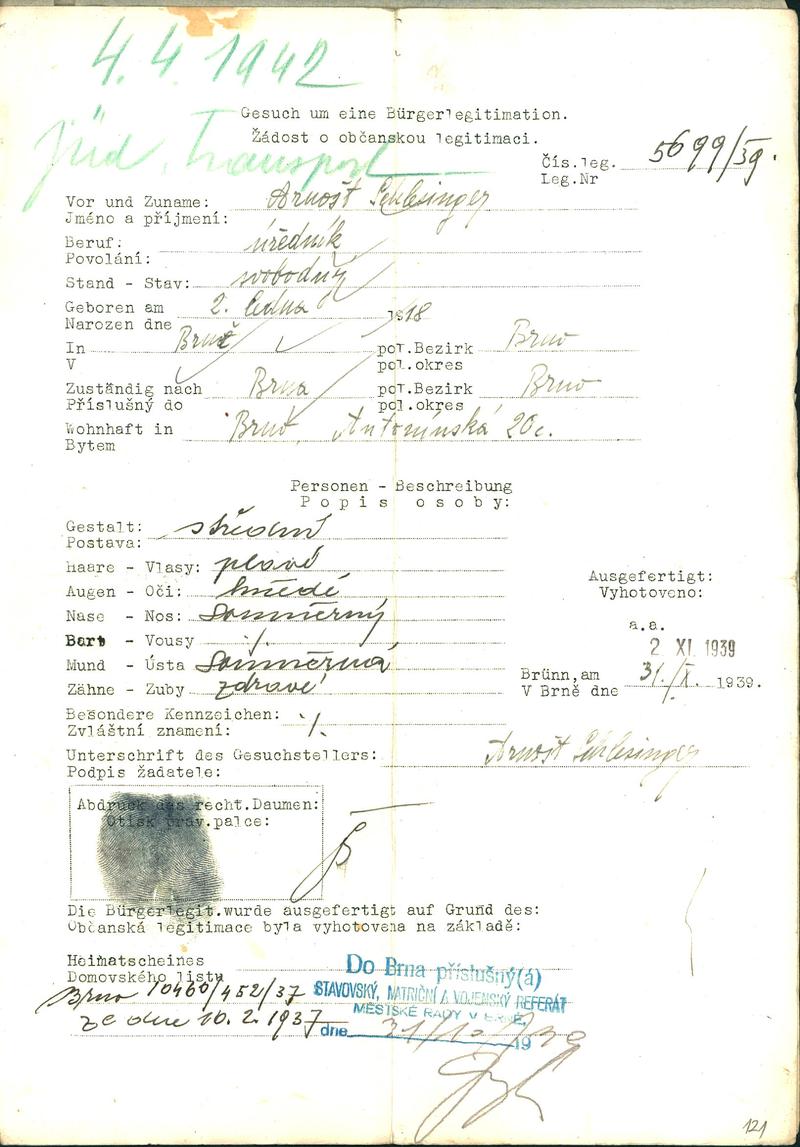 4.4.1942
jüd. Transport
Gesuch um eine Bürgerlegitimation.
Žádost o občanskou legitimaci.
Čís.leg. 5699/39.
Leg.Nr
Vor und Zuname: Arnošt Schlesinger
Jméno a příjmení:
Beruf: úředník
Povolání:
Stand - Stav: svobodný
Geboren am 2. ledna 1918
Narozen dne
In Brně pol.Bezirk Brno
V pol.okres
Zuständig nach Brna pol.Bezirk Brno
Příslušný do pol.okres
Wohnhaft in Brno, Antonínská 20c.
Bytem
Personen - Beschreibung
Popis osoby:
Gestalt: střední
Postava:
Haare - Vlasy: plavé
Augen - Oči: hnědé
Nase - Nos: souměrný
Bart - Vousy ./.
Mund - Ústa souměrná
Zähne - Zuby zdravé
Besondere Kennzeichen: ./.
Zvláštní znamení:
Ausgefertigt:
Vyhotoveno:
a.a.
2 XI. 1939
Brünn,am 31./X. 1939.
V Brně dne
Unterschrift des Gesuchstellers: Arnošt Schlesinger
Podpis žadatele:
Abdruck des recht.Daumen:
Otisk prav.palce:
Die Bürgerlegit.wurde ausgefertigt auf Grund des:
Občanská legitimace byla vyhotovena na základě:
Heimatscheines
Domovského listu
Brno 10460/452/37
ze dne 10.2.1937
Do Brna příslušný(á)
STAVOVSKÝ, MATRIČNÍ A VOJENSKÝ REFERÁT
MĚSTSKÉ RADY V BRNĚ,
dne 31/10 1939
121